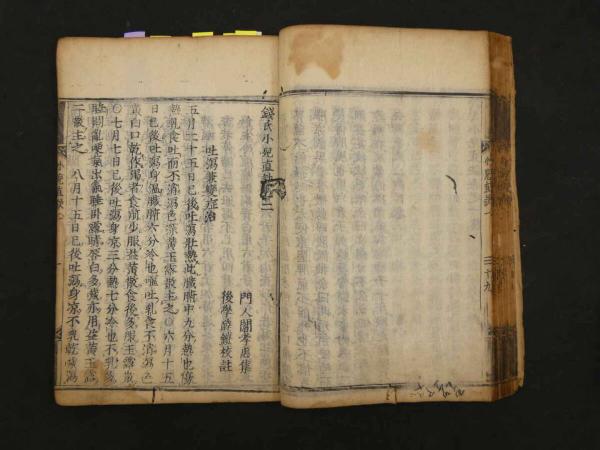 錢氏小兒直訣卷二
門人閻孝忠集
後學薛鎧校註
吐瀉兼變症治
五月二十五日已後吐瀉壯熱此臟腑中九分熱也傷
熱乳食吐而不消瀉色深黃玉露散主之〇六月十五
日已後吐瀉身溫臟腑六分冷也嘔吐乳食不消瀉色
黃白口乾作渴者食前少服益黃散食後多服玉露散
〇七月七日已後吐瀉身凉三分熱七分冷也不乳多
睡悶亂哽氣出氣睡卧露睛唇白多歲亦用益黃玉露
二散主之 八月十五日已後吐瀉身凉不乳乾噦瀉
小兒直訣
三十九